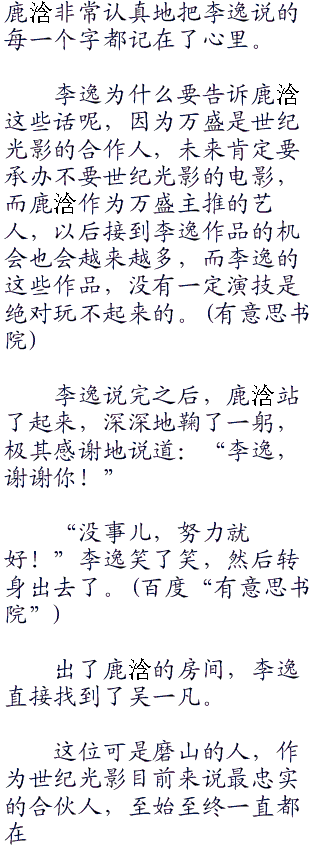 鹿浛非常认真地把李逸说的
每一个字都记在了心里。
李逸为什么要告诉鹿浛
这些话呢，因为万盛是世纪
光影的合作人，未来肯定要
承办不要世纪光影的电影，
而鹿浛作为万盛主推的艺
人，以后接到李逸作品的机
会也会越来越多，而李逸的
这些作品，没有一定演技是
绝对玩不起来的。(有意思书
院)
李逸说完之后，鹿浛站
了起来，深深地鞠了一躬，
极其感谢地说道：“李逸，
谢谢你！”
“没事儿，努力就
好！”李逸笑了笑，然后转
身出去了。(百度“有意思书
院”)
出了鹿浛的房间，李逸
直接找到了吴一凡。
这位可是磨山的人，作
为世纪光影目前来说最忠实
的合伙人，至始至终一直都
在